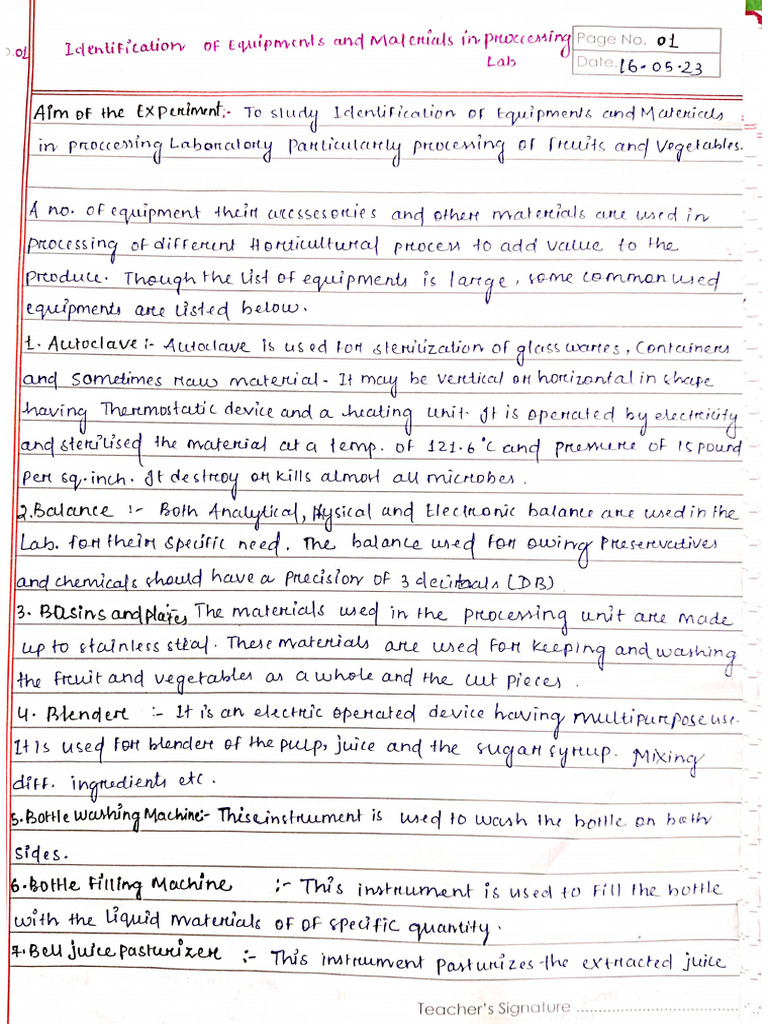 .01 Identification of Equipments and Materials in proccessing Page No. 01
Lab Date. 16-05-23
Aim of the Experiment:- To study Identification of Equipments and Materials
in proccessing Laboratory Particularly processing of fruits and Vegetables.
A no. of equipment their arcssesories and other materials are used in
processing of different Horticultural process to add value to the
produce. Though the list of equipments is large, some common used
equipments are listed below.
1. Autoclave :- Autoclave is used for sterilization of glass wares, Containers
and sometimes raw material. It may be vertical or horizontal in shape
having Thermostatic device and a heating unit. It is operated by electricity
and sterilised the material at a temp. of 121.6°C and pressure of 15 pound
per sq. inch. It destroy or kills almost all microbes.
2. Balance :- Both Analytical, Physical and Electronic balance are used in the
Lab. for their specific need. The balance used for owing Preservatives
and chemicals should have a precision of 3 decimals (DB)
3. Basins and plates The materials used in the processing unit are made
up to stainless steal. These materials are used for keeping and washing
the fruit and vegetables as a whole and the cut pieces.
4. Blender :- It is an electric operated device having multipurpose use.
It is used for blender of the pulp, juice and the sugar syrup. Mixing
diff. ingredients etc.
5. Bottle Washing Machine:- This instrument is used to wash the bottle on both
sides.
6. Bottle Filling Machine :- This instrument is used to fill the bottle
with the liquid materials of of specific quantity.
7. Bell juice Pasturizer :- This instrument pasturizes the extracted juice
Teacher's Signature